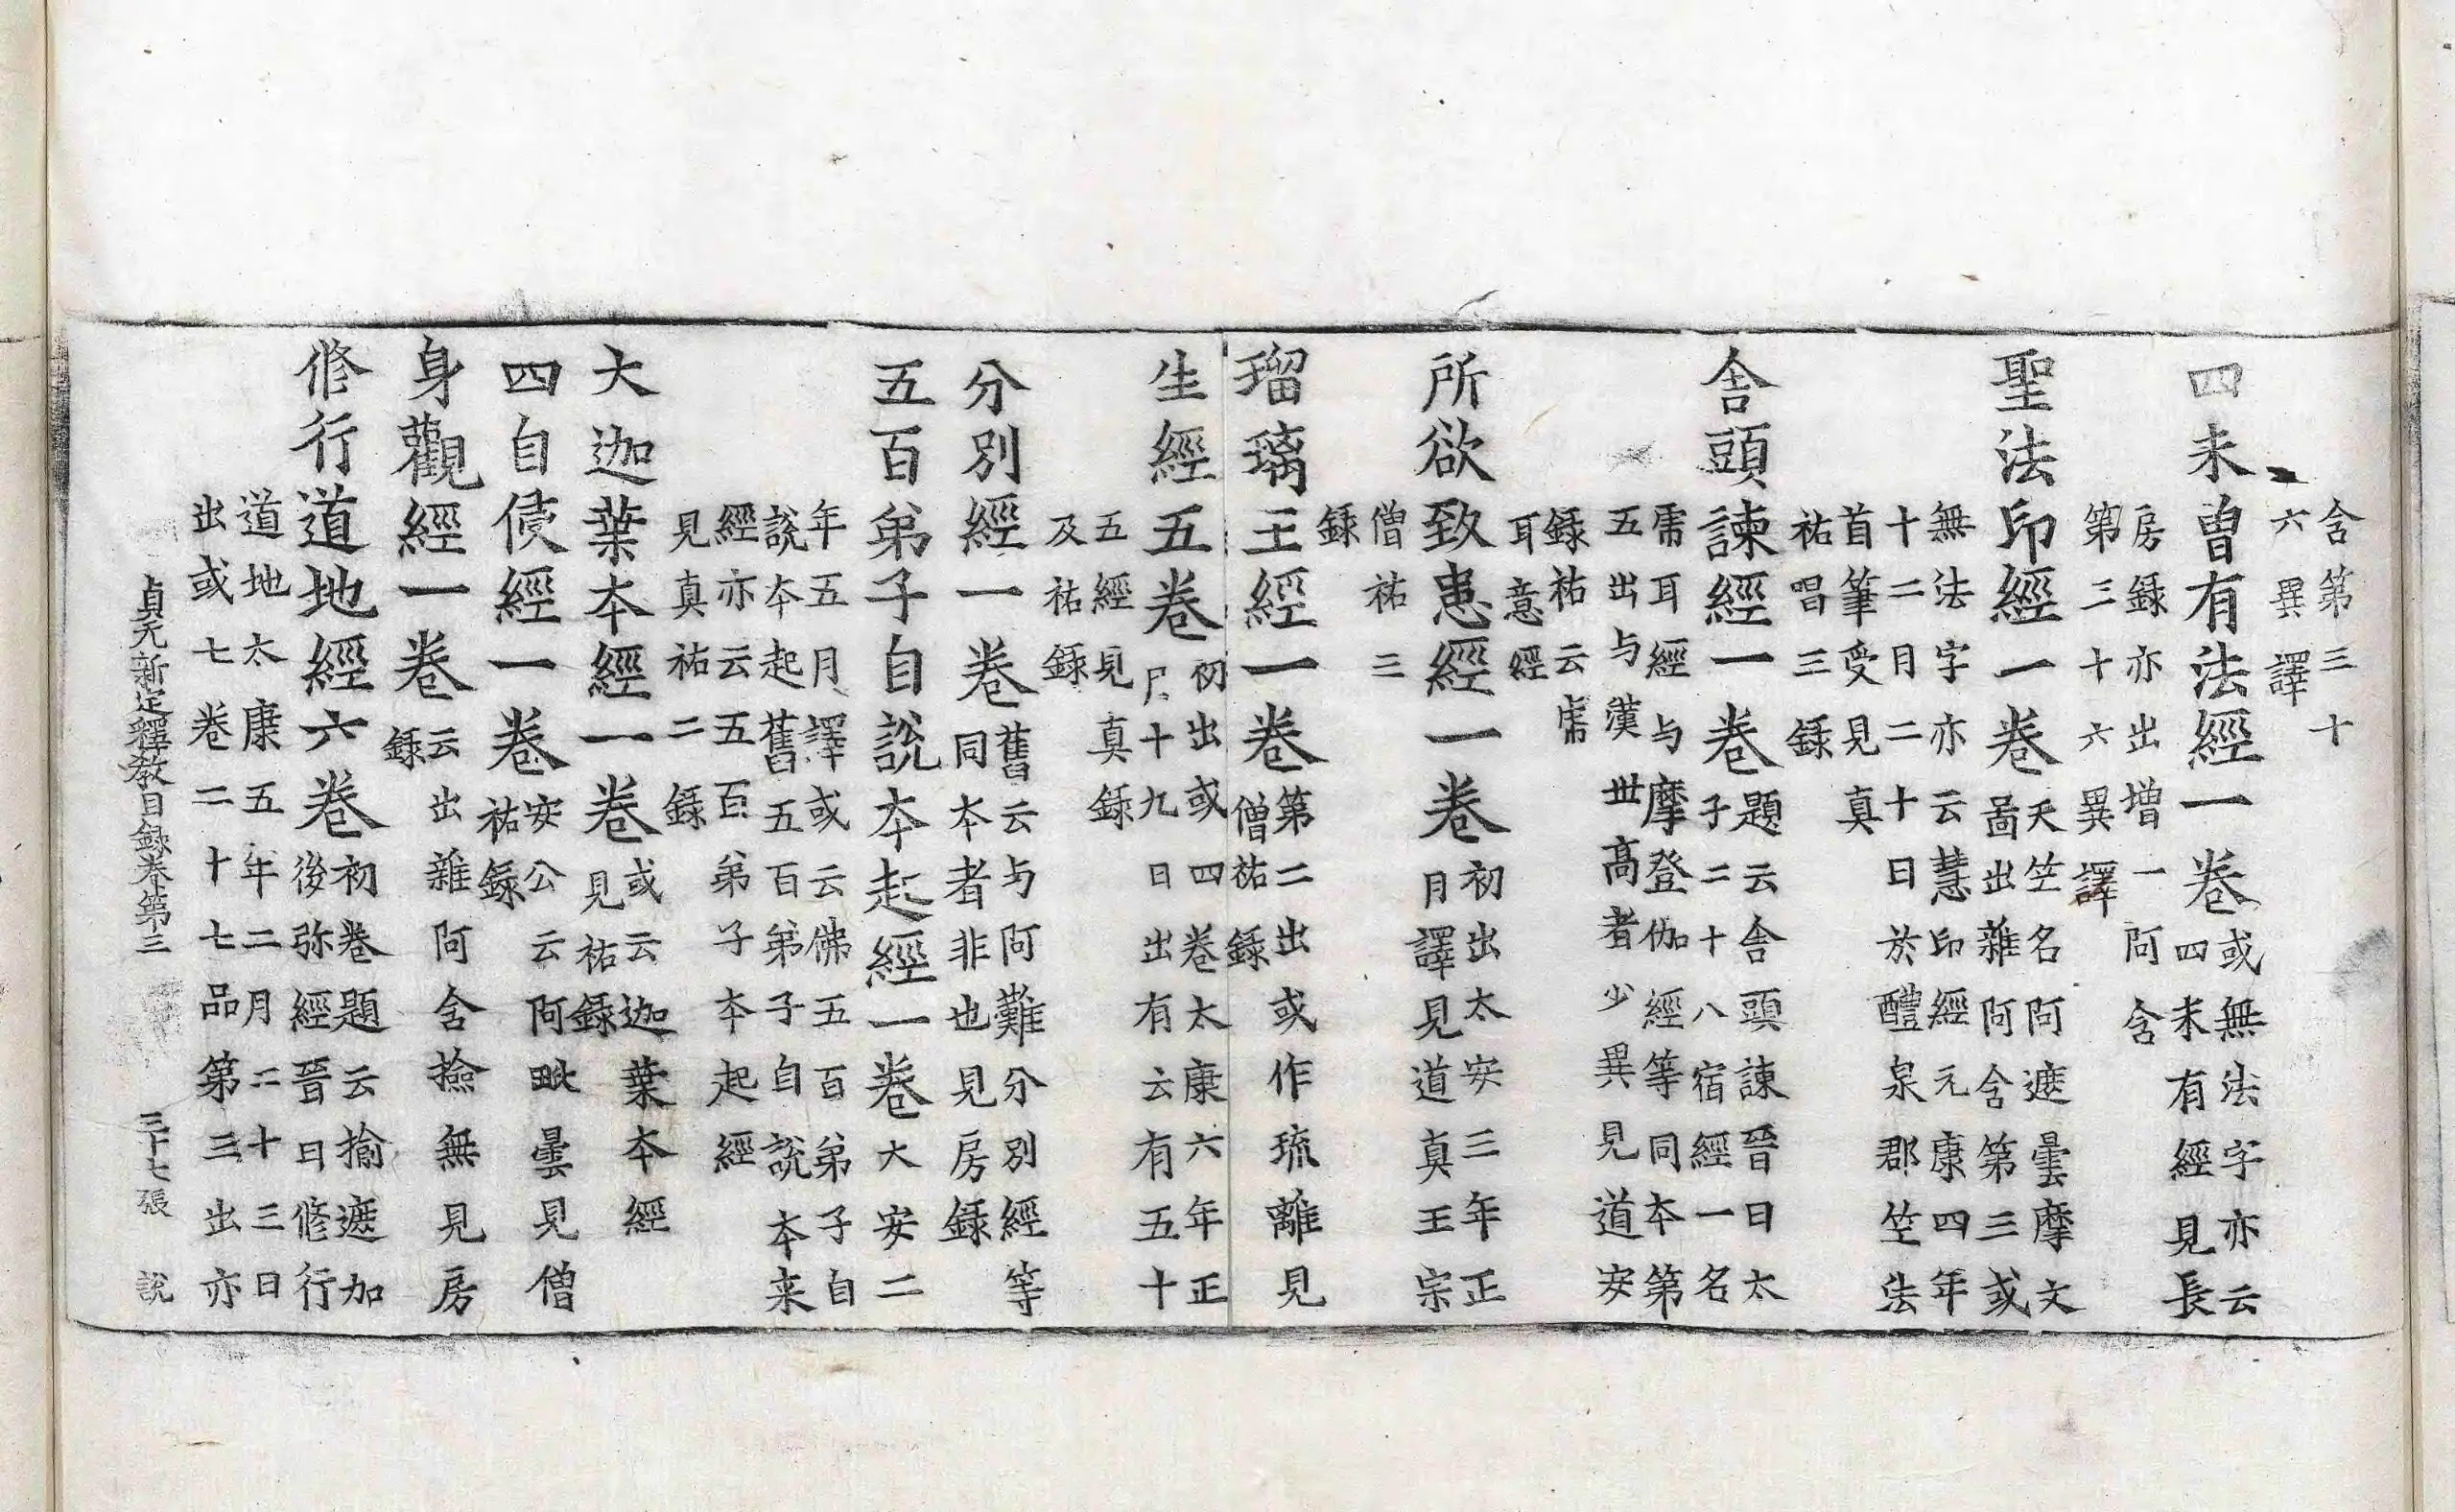 含第三十
六異譯
四未曾有法經一卷
或無法字亦云
四未有經見長
房録亦出增一阿含
第三十六異譯
聖法印經一卷
天竺名阿遮曇摩文
啚出雜阿含第三或
無法字亦云慧印經元康四年
十二月二十日於醴泉郡竺法
首筆受見真
祐唱三録
舎頭諫經一卷
題云舎頭諫晉曰太
子二十八宿經一名
虎耳經与摩登伽經等同本第
五出与漢世高者少異見道安
録祐云虎
耳意經
所欲致患經一卷
初出太安三年正
月譯見道真王宗
僧祐三
録
瑠璃王經一卷
第二出或作琉離見
僧祐録
生經五卷
初出或四卷太康六年正
月十九日出有云有五十
五經見真録
及祐録
分別經一卷
舊云与阿難分別經等
同本者非也見房録
五百弟子自說本起經一卷
大安二
年五月譯或云佛五百弟子自
說本起舊五百弟子自說本来
經亦云五百弟子本起經
見真祐二録
大迦葉本經一卷
或云迦葉本經
見祐録
四自侵經一卷
安公云阿毗曇見僧
祐録
身觀經一卷
云出雜阿含撿無見房
録
修行道地經六卷
初卷題云揄遮加
後弥經晉曰修行
道地太康五年二月二十三日
出或七卷二十七品第三出亦
貞元新定釋教目録卷第三 三十七張 說